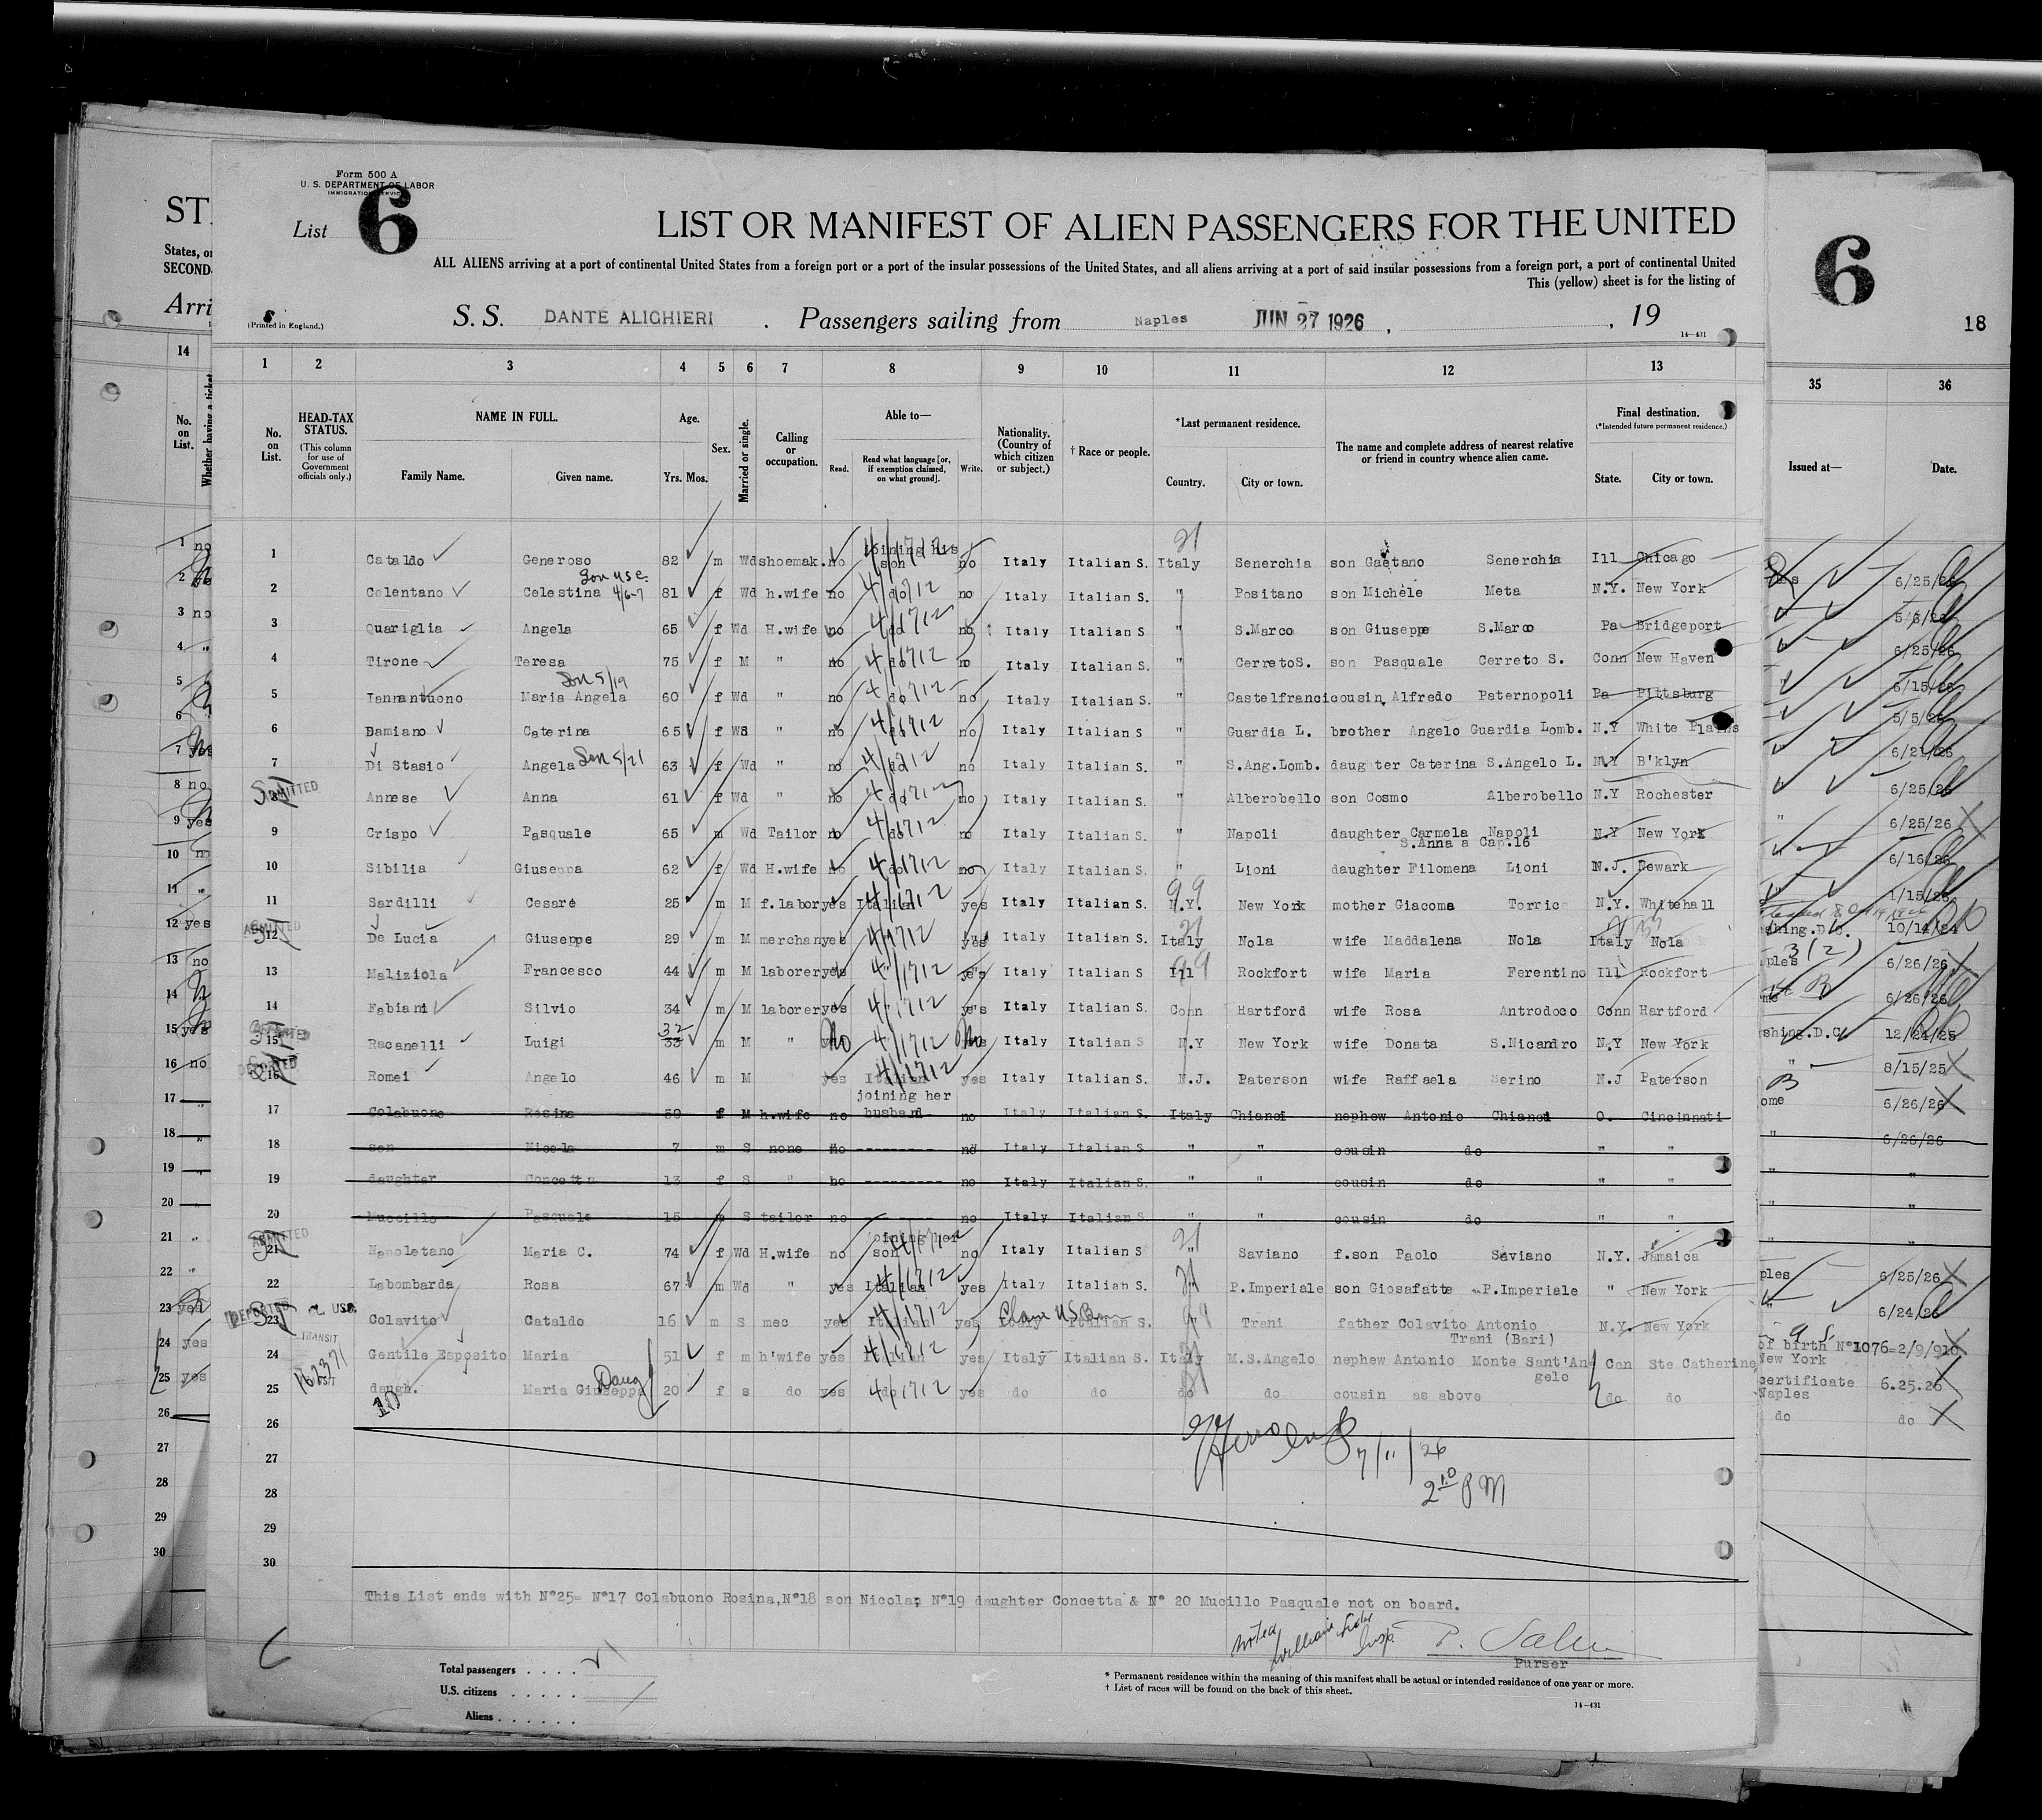 Form 500 A
U. S. DEPARTMENT OF LABOR
IMMIGRATION SERVICE
List 6
LIST OR MANIFEST OF ALIEN PASSENGERS FOR THE UNITED
ALL ALIENS arriving at a port of continental United States from a foreign port or a port of the insular possessions of the United States, and all aliens arriving at a port of said insular possessions from a foreign port, a port of continental United
This (yellow) sheet is for the listing of
(Printed in England.)
S. S. DANTE ALIGHIERI . Passengers sailing from Naples JUN 27 1926 , , 19
14—431
1 2 3 4 5 6 7 8 9 10 11 12 13
No. on List.
HEAD-TAX STATUS. (This column for use of Government officials only.)
NAME IN FULL. Family Name. Given name.
Age. Yrs. Mos.
Sex.
Married or single.
Calling or occupation.
Able to— Read. Read what language [or, if exemption claimed, on what ground]. Write.
Nationality. (Country of which citizen or subject.)
† Race or people.
*Last permanent residence. Country. City or town.
The name and complete address of nearest relative or friend in country whence alien came.
Final destination. (*Intended future permanent residence.) State. City or town.
1 Cataldo Generoso 82 m Wd shoemak. no joining his son no Italy Italian S. Italy Senerchia son Gaetano Senerchia Ill Chicago
2 Celentano Celestina 81 f Wd h.wife no do no Italy Italian S. " Positano son Michele Meta N.Y. New York
3 Quariglia Angela 65 f Wd H.wife no do no Italy Italian S " S.Marco son Giuseppe S.Marco Pa Bridgeport
4 Tirone Teresa 75 f M " no do no Italy Italian S. " CerretoS. son Pasquale Cerreto S. Conn New Haven
5 Iannantuono Maria Angela 60 f Wd " no do no Italy Italian S. " Castelfranci cousin Alfredo Paternopoli Pa Pittsburg
6 Damiano Caterina 65 f Wd " no do no Italy Italian S " Guardia L. brother Angelo Guardia Lomb. N.Y White Plains
7 Di Stasio Angela 63 f Wd " no do no Italy Italian S. " S.Ang.Lomb. daughter Caterina S.Angelo L. N.Y B'klyn
8 ADMITTED Annese Anna 61 f Wd " no do no Italy Italian S. " Alberobello son Cosmo Alberobello N.Y Rochester
9 Crispo Pasquale 65 m Wd Tailor no do no Italy Italian S. " Napoli daughter Carmela Napoli N.Y New York
S.Anna a Cap.16
10 Sibilia Giuseppa 62 f Wd H.wife no do no Italy Italian S. " Lioni daughter Filomena Lioni N.J. Newark
11 Sardilli Cesare 25 m M f.labor yes Italian yes Italy Italian S. N.Y. New York mother Giacoma Torrice N.Y. Whitehall
12 ADMITTED De Lucia Giuseppe 29 m M merchan yes " yes Italy Italian S. Italy Nola wife Maddalena Nola Italy Nola
13 Maliziola Francesco 44 m M laborer yes " yes Italy Italian S Ill Rockfort wife Maria Ferentino Ill Rockfort
14 Fabiani Silvio 34 m M laborer yes " yes Italy Italian S. Conn Hartford wife Rosa Antrodoco Conn Hartford
15 Racanelli Luigi 32 33 m M " No " No Italy Italian S N.Y New York wife Donata S.Nicandro N.Y New York
16 Romei Angelo 46 m M " yes Italian yes Italy Italian S. N.J. Paterson wife Raffaela Serino N.J Paterson
17 Colabuono Rosina 50 f M h.wife no joining her husband no Italy Italian S. Italy Chianci nephew Antonio Chianci O. Cincinnati
18 son Nicola 7 m S none no --------- no Italy Italian S " " cousin do " "
19 daughter Concetta 13 f S " no --------- no Italy Italian S. " " cousin do " "
20 Muccillo Pasquale 15 m S tailor no --------- no Italy Italian S " " cousin do " "
21 ADMITTED Napoletano Maria C. 74 f Wd H.wife no joining her son no Italy Italian S " Saviano f.son Paolo Saviano N.Y. Jamaica
22 Labombarda Rosa 67 m Wd " yes Italian yes Italy Italian S. " P.Imperiale son Giosafatte P.Imperiale " New York
23 Colavito Cataldo 16 m S mec yes Italian yes Italy Italian S. " Trani father Colavito Antonio N.Y. New York
Trani (Bari)
TRANSIT
24 Gentile Esposito Maria 51 f m h'wife yes Italian yes Italy Italian S. Italy M.S.Angelo nephew Antonio Monte Sant'An Can Ste Catherine
gelo
25 daugh. Maria Giuseppa 20 f s do yes do yes do do do do cousin as above do do
26
27
28
29
30
7/11/26
2 10 PM
This List ends with N°25= N°17 Colabuono Rosina,N°18 son Nicola, N°19 daughter Concetta & N° 20 Mucillo Pasquale not on board.
Purser
Total passengers . . . .
U.S. citizens . . . . .
Aliens . . . . . .
* Permanent residence within the meaning of this manifest shall be actual or intended residence of one year or more.
† List of races will be found on the back of this sheet.
14—431
6
18
35 36
Issued at— Date.
6/25/26
5/6/26
6/25/26
6/15/26
5/5/26
6/21/26
6/25/26
6/25/26
6/16/26
1/15/26
6/26/26
6/26/26
12/24/25
8/15/25
6/26/26
6/26/26
6/25/26
6/24/26
of birth N°1076=2/9/910
New York
certificate 6.25.26
Naples
do do